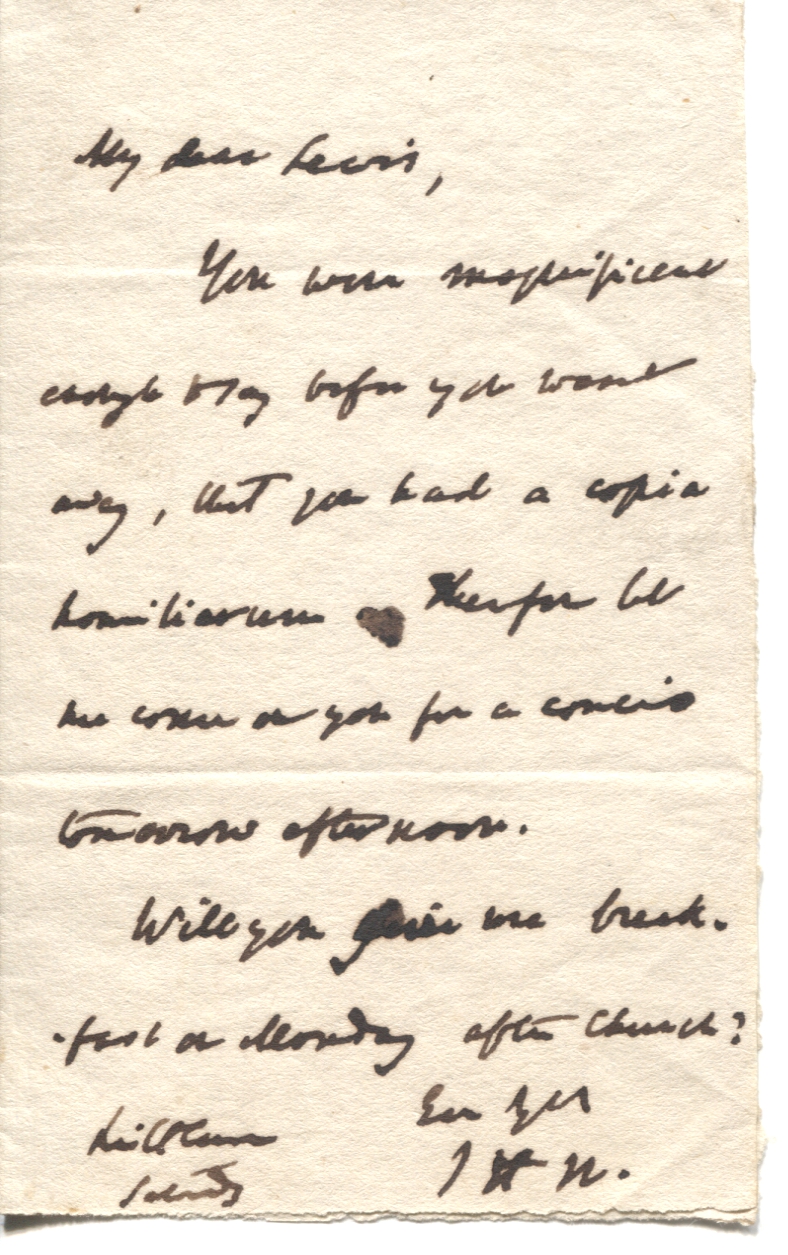 My dear Lewis,
You were magnificent
enough to say before you went
away, that you had a copia
homiliarum Therefore let
me come on you for a concio
tomorrow afternoon.
Will you give me break-
-fast on Monday after Church?
Ever Yrs
J H N.
Littlemore
Saturday